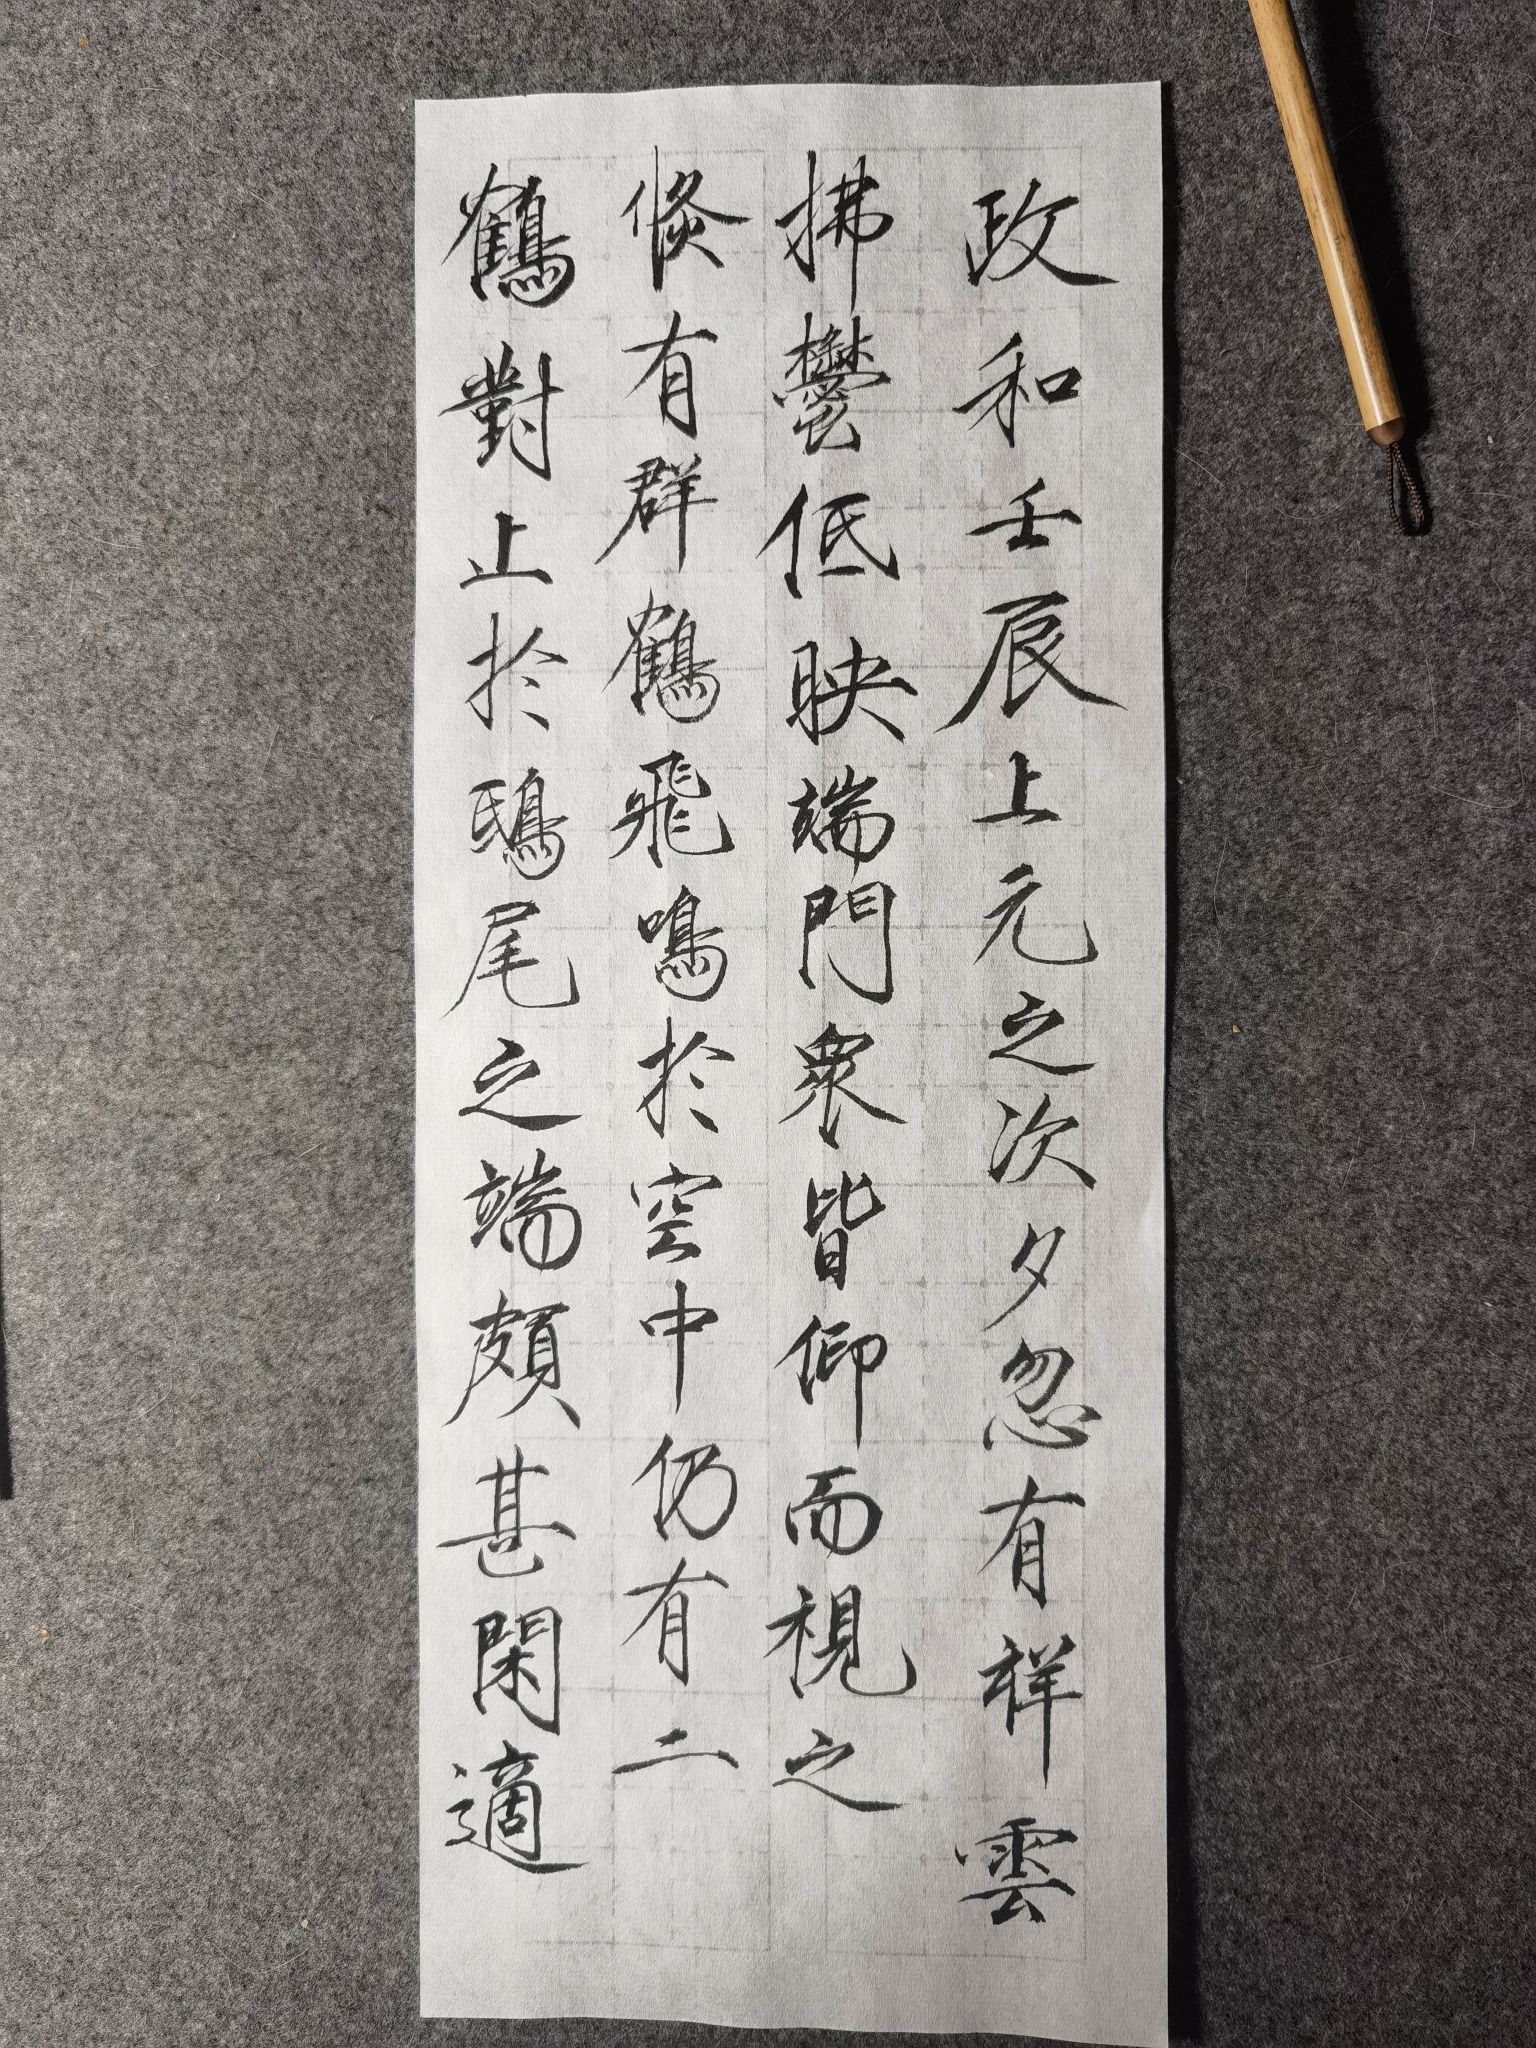 政和壬辰上元之次夕忽有祥雲
拂鬱低映端門衆皆仰而視之
倐有群鶴飛鳴於空中仍有二
鶴對止於鴟尾之端頗甚閑適